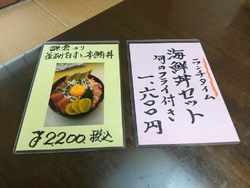 鎌倉より
釜あげ白す、本鮪丼
¥2200.税込
ランチタイム
海鮮丼セット
フライ付き
一、六〇〇円